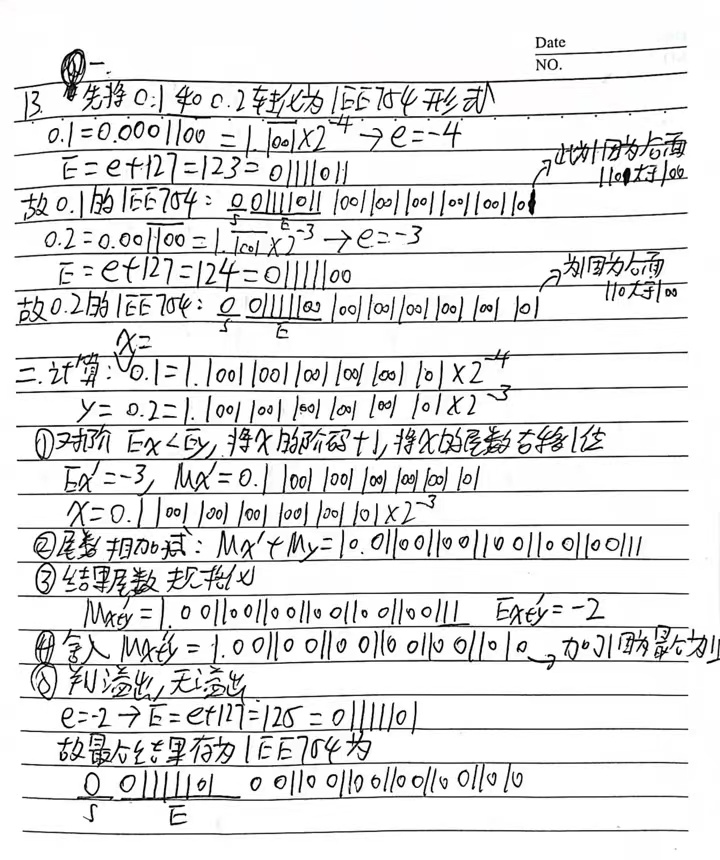 Date
NO.
一.
13. 先将0.1和0.2转化为IEE754形式
0.1=0.0001100=1.1001×2^-4→e=-4
E=e+127=123=01111011
此为1因为后面
110大于100
故0.1的IEE754: 0 01111011 10011001100110011001101
S E
0.2=0.001100=1.1001×2^-3→e=-3
E=e+127=124=01111100
为1因为后面
110大于100
故0.2的IEE754: 0 01111100 10011001100110011001101
S E
X=
二.计算: 0.1=1.10011001100110011001101×2^-4
y=0.2=1.10011001100110011001101×2^-3
①对阶 Ex<Ey, 将X的阶码+1, 将X的尾数右移1位
Ex'=-3, Mx'=0.110011001100110011001101
X=0.110011001100110011001101×2^-3
②尾数相加减: Mx'+My=10.011001100110011001100111
③结果尾数规格化
Mx+y'=1.0011001100110011001100111 Ex+y'=-2
④舍入 Mx+y'=1.00110011001100110011010→加1因为最后为11
⑤判溢出,无溢出
e=-2→E=e+127=125=01111101
故最后结果存为IEE754为
0 01111101 00110011001100110011010
S E